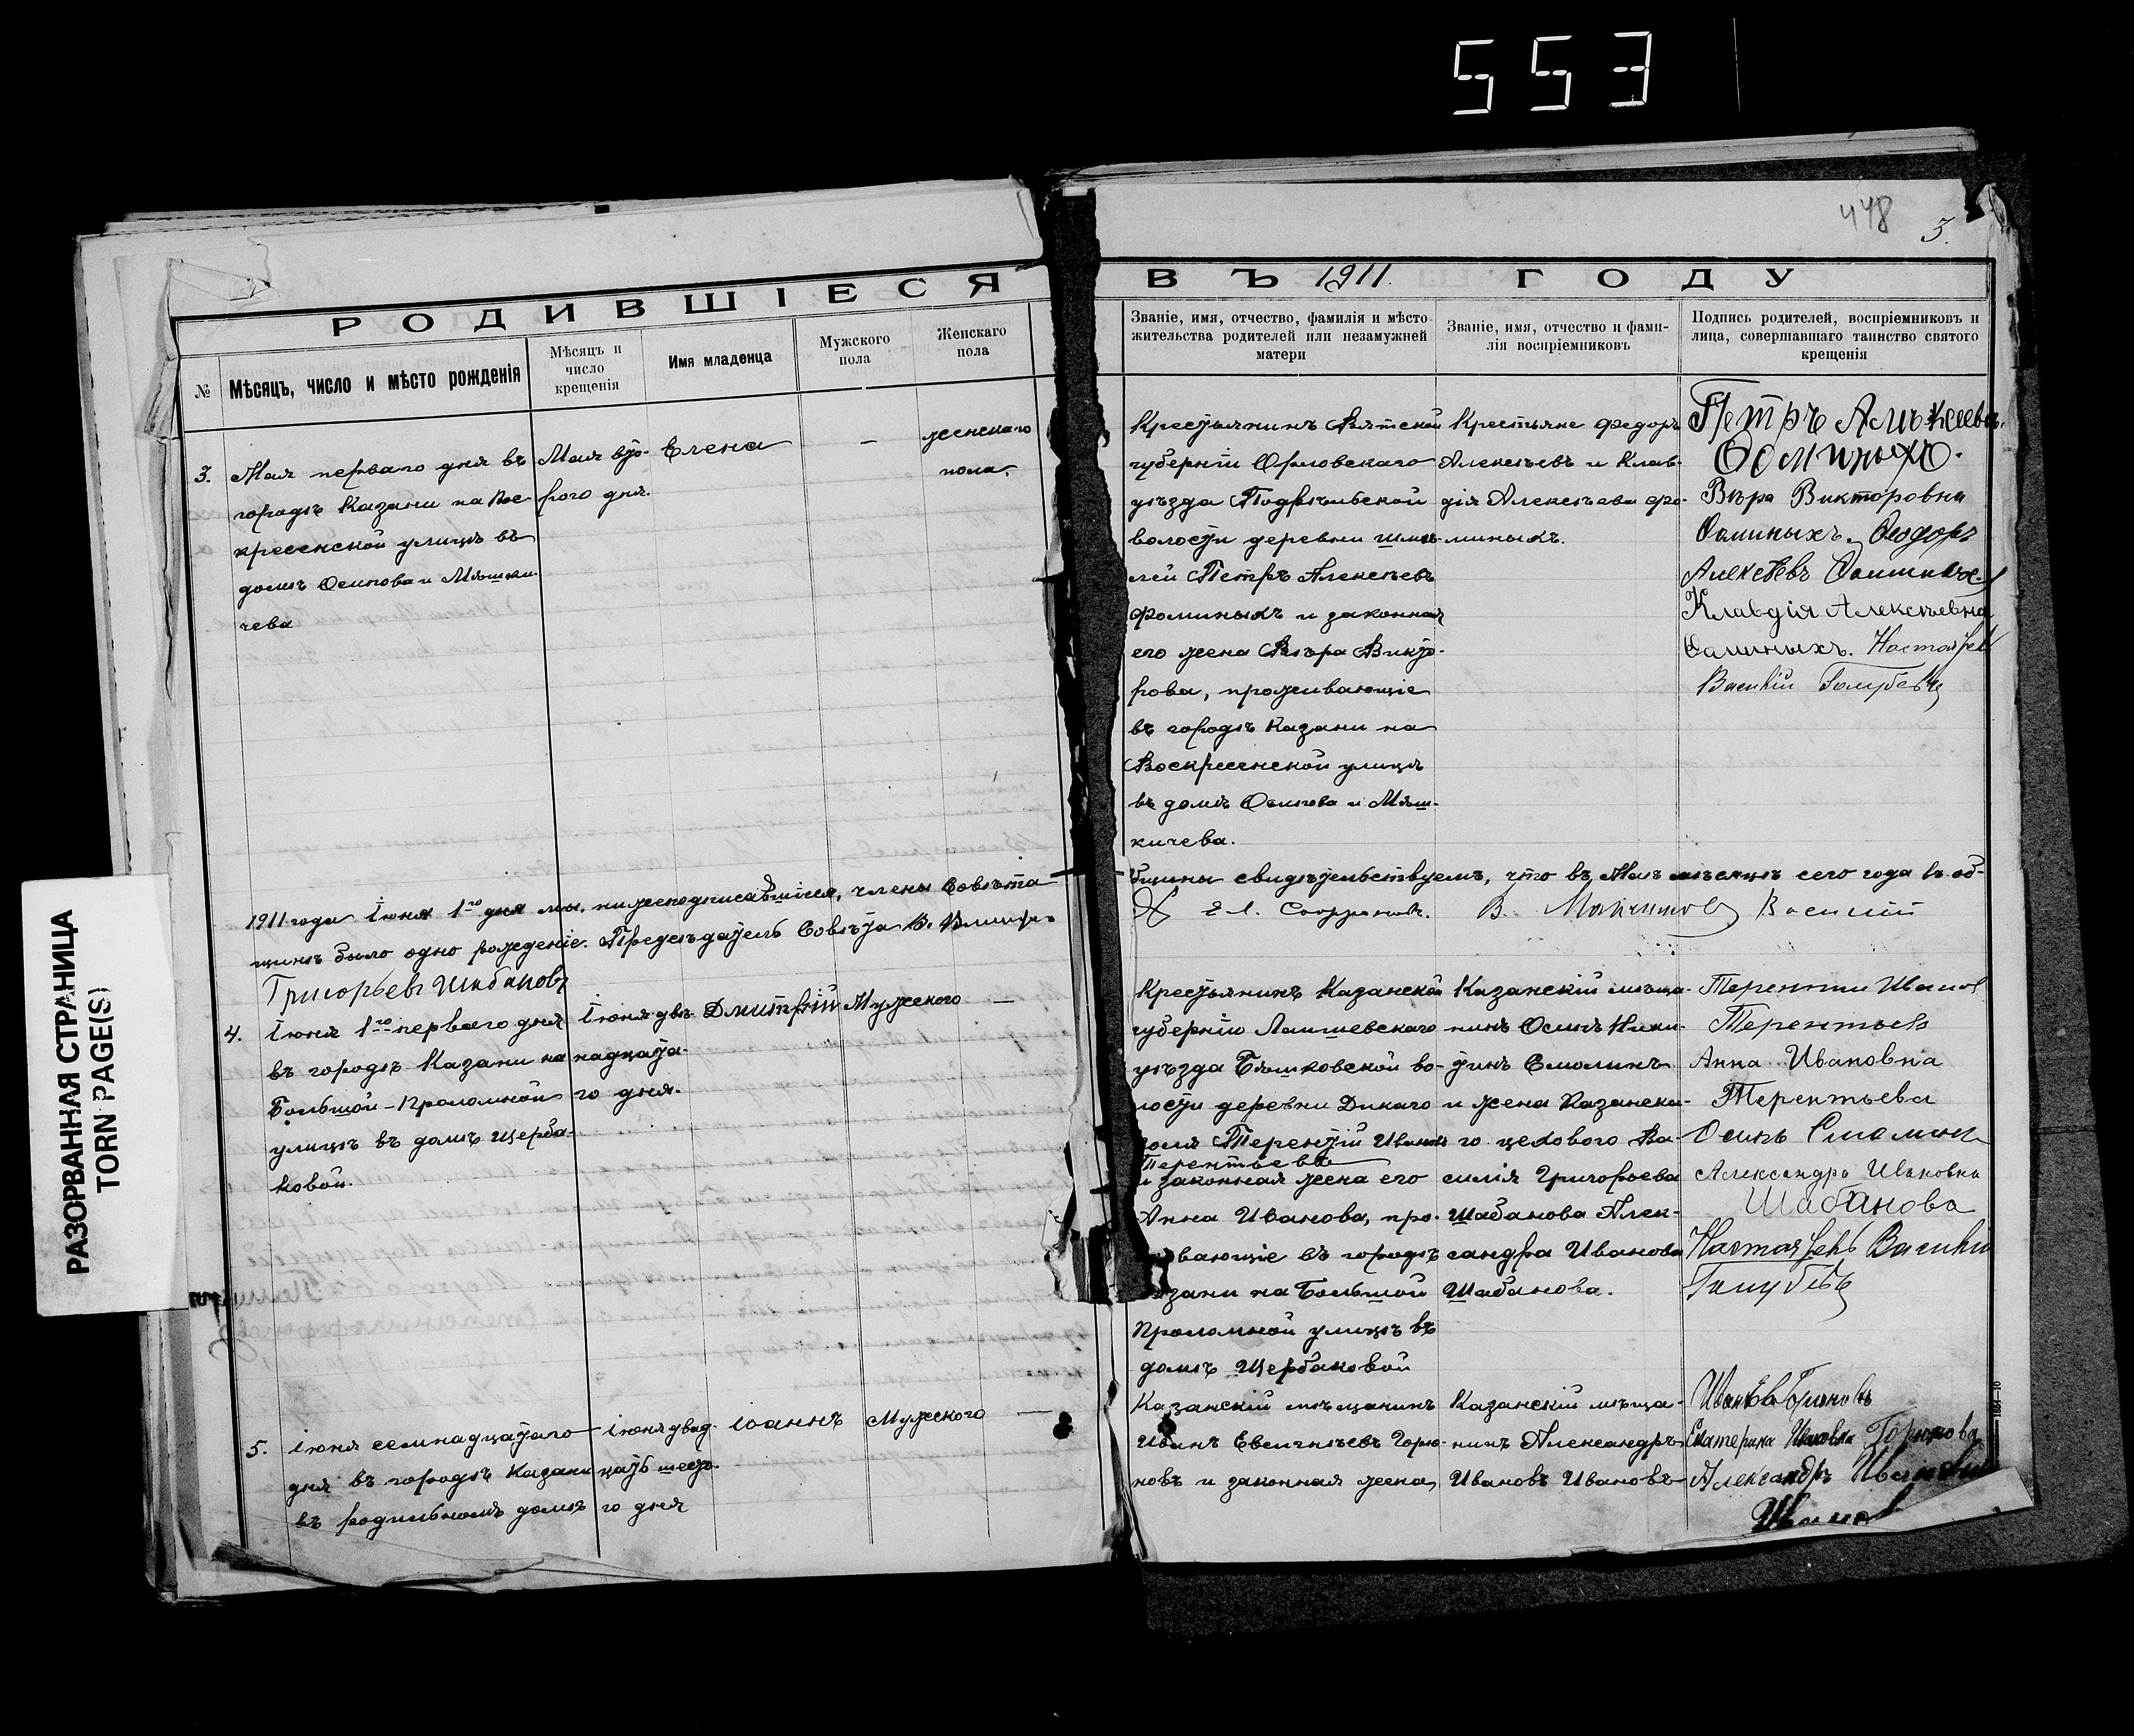 553
448
3.
РОДИВШІЕСЯ
ВЪ 1911 ГОДУ
№
Мѣсяцъ, число и мѣсто рожденія
Мѣсяцъ и
число
крещенія
Имя младенца
Мужского
пола
Женскаго
пола
Званіе, имя, отчество, фамилія и мѣсто
жительства родителей или незамужней
матери
Званіе, имя, отчество и фами-
лія воспріемниковъ
Подпись родителей, воспріемниковъ и
лица, совершавшаго таинство святого
крещенія
3.
Мая перваго дня въ
городѣ Казани на Вос-
кресенской улицѣ въ
домѣ Осипова и Мяшки-
чева
Мая вто-
рого дня.
Елена
—
женскаго
пола.
Крестьянинъ Вятской
губерніи Орловскаго
уѣзда Подрѣльской
волости деревни
лей Петръ Алексѣевъ
Фоминыхъ и законная
его жена Вѣра Викто-
рова, проживающіе
въ городѣ Казани на
Воскресенской улицѣ
въ домѣ Осипова и Мяш-
кичева.
Крестьяне Федоръ
Алексѣевъ и Клав-
дія Алексѣева Фо-
миныхъ.
Петръ Алексеевъ
Фоминыхъ.
Вѣра Викторовна
Фоминыхъ. Феодоръ
Алексѣевъ Фоминыхъ
Клавдія Алексѣевна
Фоминыхъ. Настоятель
Василій Голубевъ
1911 года Іюня 1го дня мы, нижеподписавшіеся, члены Совѣта
бщины свидѣтельствуемъ, что въ Маѣ мѣсяцѣ сего года въ об-
щинѣ было одно рожденіе. Предсѣдатель Совѣта В.
Сафроновъ. В. Василій
Григорьевъ Шабановъ
4.
Іюня 1го перваго дня
въ городѣ Казани на
Большой-Проломной
улицѣ въ домѣ Щерба-
ковой.
Іюня две-
надцата-
го дня.
Дмитрій
Мужского
—
Крестьянинъ Казанской
губерніи Лаишевскаго
уѣзда Бѣтьковской во-
лости деревни Дикаго
поля Терентій Ивановъ
Терентьевъ
и законная жена его
Анна Иванова, про-
вающіе въ городѣ
зани на Большой
Проломной улицѣ въ
домѣ Щербаковой
Казанскій мѣща-
нинъ Осипъ Ники-
тинъ Смолинъ
и жена Казанска-
го цехового Ва-
силія Григорьева
Шабанова Алек-
сандра Иванова
Шабанова.
Терентий Иванов
Терентьев
Анна Ивановна
Терентьева
Осипъ Смолин
Александра Ивановна
Шабанова
Настоятель Василій
Голубевъ
5.
Іюня семнадцатаго
дня въ городѣ Казани
въ родильномъ домѣ
Іюня двад-
цать шесто-
го дня
Іоаннъ
Мужского
—
Казанскій мѣщанинъ
Иванъ Евгеньевъ Горю-
новъ и законная жена
Казанскій мѣща-
нинъ Александръ
Ивановъ Ивановъ
Иванъ Горюновъ
Екатерина Ивановна Горюнова
Александръ Ивановичъ
Иванов
РАЗОРВАННАЯ СТРАНИЦА
TORN PAGE(S)